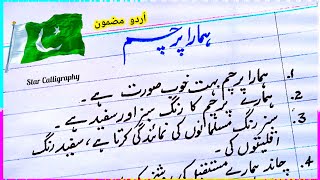 اُردو مضمون
ہمارا پرچم
Star Calligraphy
1. ہمارا پرچم بہت خوب صورت ہے۔
2. ہمارے پرچم کا رنگ سبز اور سفید ہے۔
3. سبز رنگ مسلمانوں کی نمائندگی کرتا ہے، سفید رنگ
اقلیتوں کی۔
4. چاند ہمارے مستقبل کی